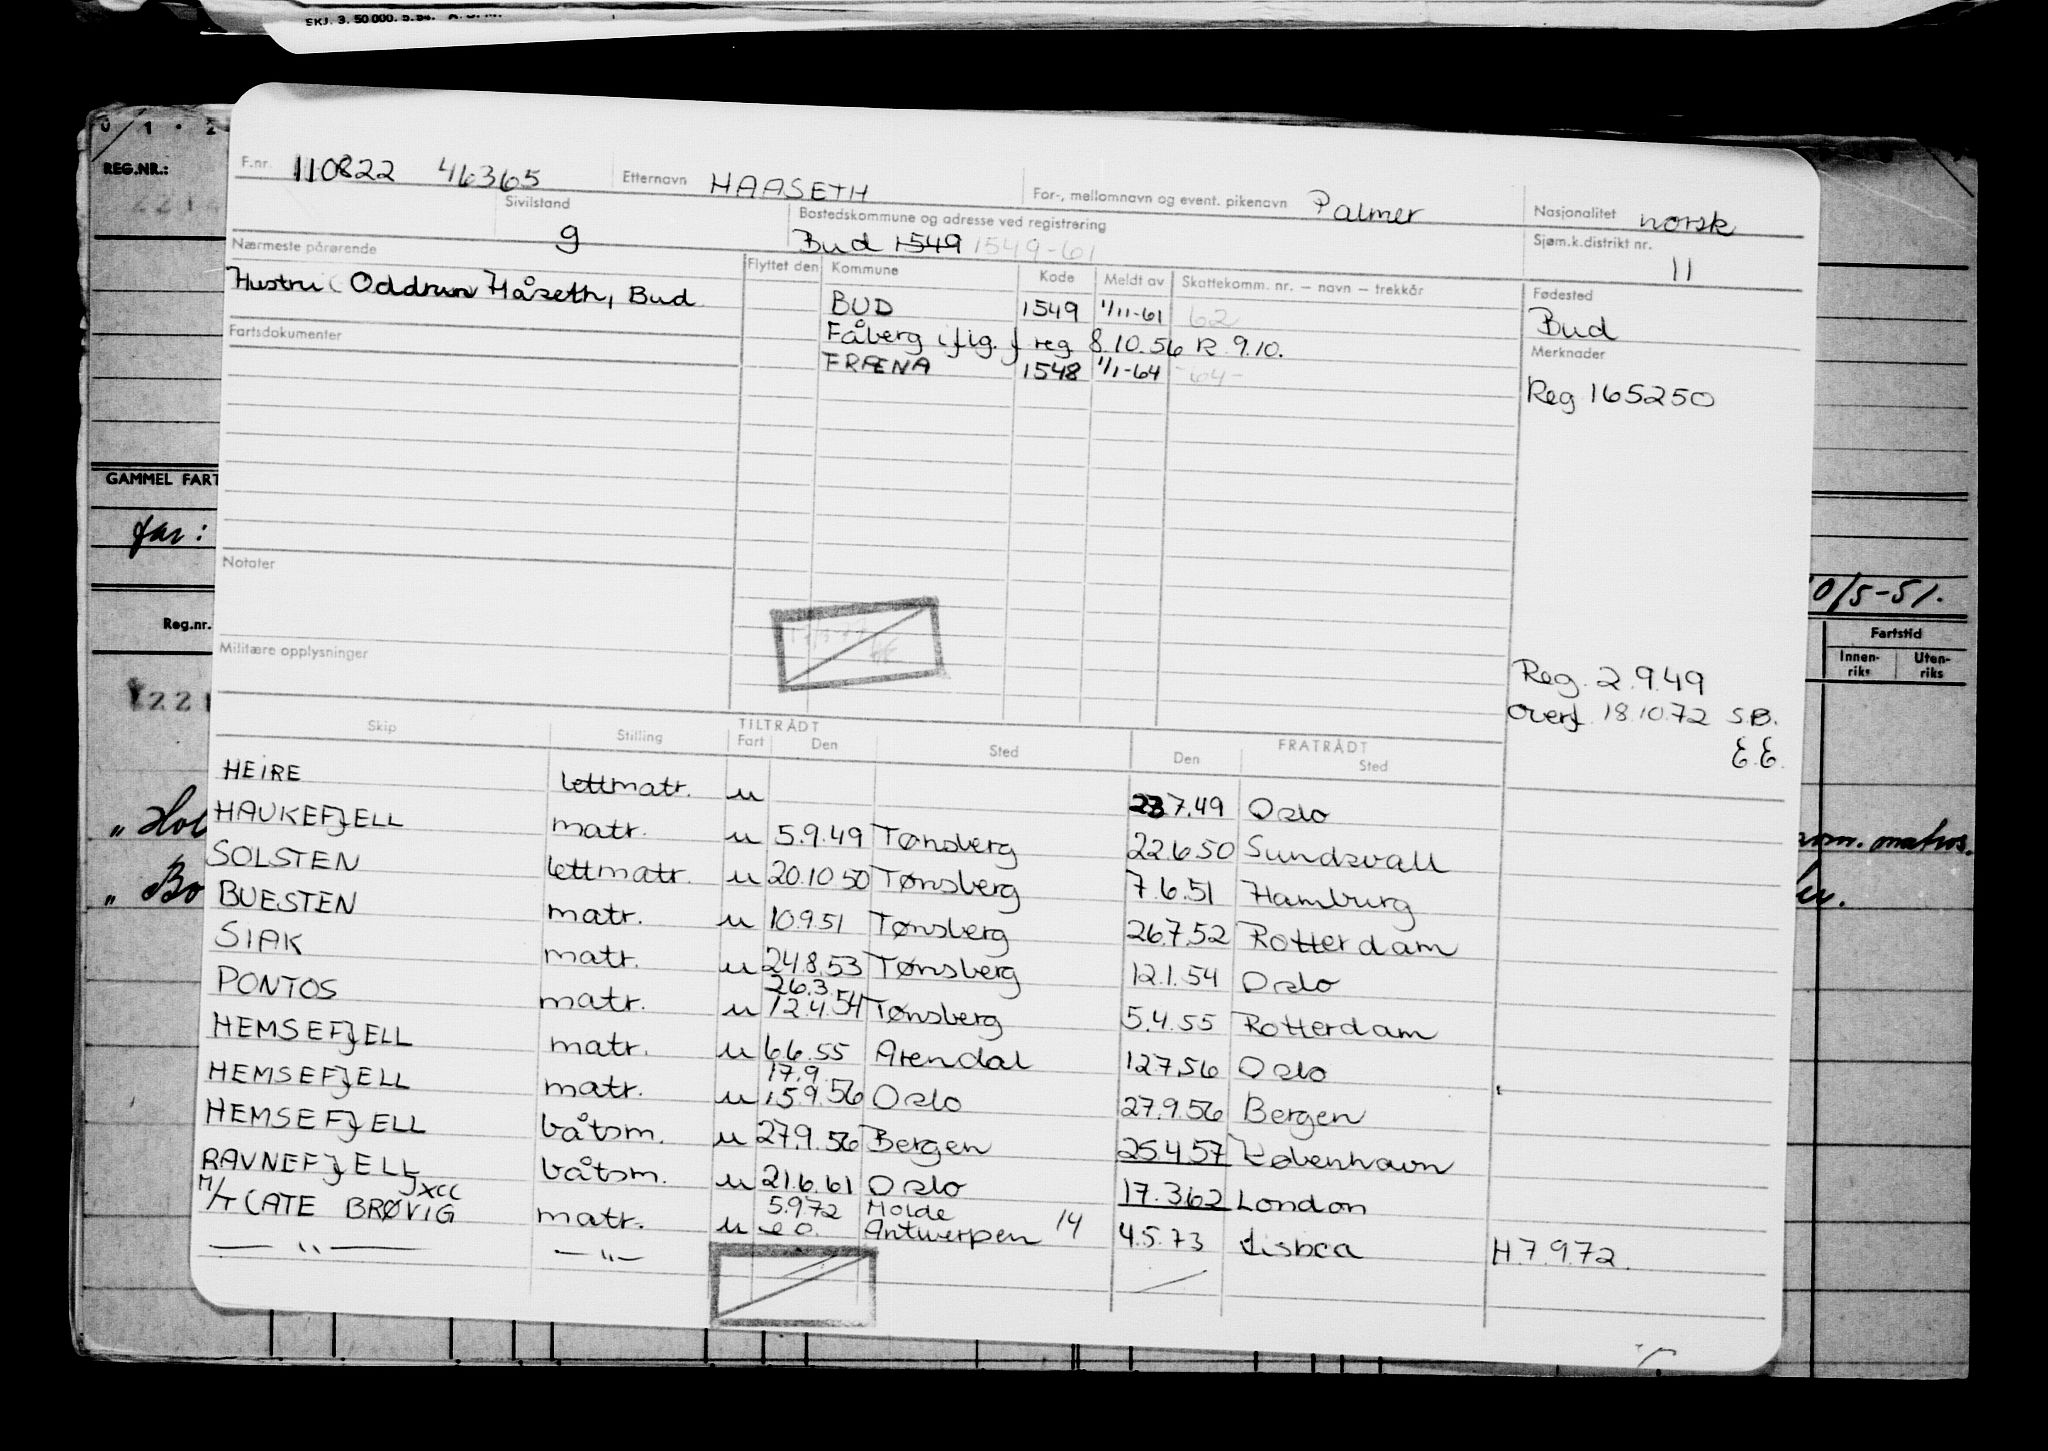 SKJ. 3. 50 000. 5.54. A. S. M.
0 1 . 2
REG.NR.:
GAMMEL FART
far:
Reg.nr.
F.nr. 110822 46365 Etternavn HAASETH For-, mellomnavn og event. pikenavn Palmer Nasjonalitet norsk
Sivilstand g Bostedskommune og adresse ved registrering Bud 1549 1549-61 Sjøm.k.distrikt nr. 11
Nærmeste pårørende Flyttet den Kommune Kode Meldt av Skattekomm. nr. – navn – trekkår Fødested
Hustru Oddrun Håseth, Bud BUD 1549 1/11-61 62 Bud
Fartsdokumenter Fåberg iflg. f reg 8.10.56 R 9.10. Merknader
FRÆNA 1548 1/1-64 -64-
Reg 165250
Notater
Militære opplysninger
Reg. 2.9.49
Overf. 18.10.72 S.B.
E.E.
10/5-51.
Fartstid
Innen-riks Uten-riks
Skip Stilling TILTRÅDT Fart Den Sted FRATRÅDT Den Sted
HEIRE lettmatr. u 23 7.49 Oslo
HAUKEFJELL matr. u 5.9.49 Tønsberg 22.6.50 Sundsvall
SOLSTEN lettmatr. u 20.10 50 Tønsberg 7.6.51 Hamburg
BUESTEN matr. u 10.9.51 Tønsberg 26.7.52 Rotterdam
SIAK matr. u 24.8.53 Tønsberg 12.1.54 Oslo
26.3
PONTOS matr. u 12.4.54 Tønsberg 5.4.55 Rotterdam
HEMSEFJELL matr. u 6.6.55 Arendal 12.7.56 Oslo
17.9
HEMSEFJELL matr. u 15.9.56 Oslo 27.9.56 Bergen
HEMSEFJELL båtsm. u 27.9.56 Bergen 25.4.57 København
RAVNEFJELL båtsm. u 21.6.61 Oslo 17.3.62 London
JXCC 5.9.72 Molde
M/T CATE BRØVIG matr. u e o. Antwerpen 14 4.5.73 Lisboa H.7.9.72.
— " — — " —
"Hol
"Bo
matros.